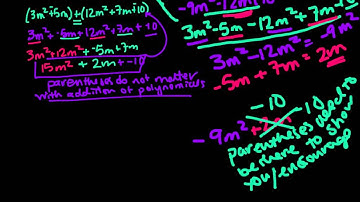 (3m²+5m) + (12m²+7m+10)
3m² + -5m + 12m² + 7m + 10
3m² + 12m² + -5m + 7m
15m² + 2m + -10
parentheses do not matter
with addition of polynomials
-9m - 12m
3m² - 5m - 12m² + 7m - 10
3m² - 12m² = -9m²
-5m + 7m = 2m
-10
-10
-9m² + 2m
parentheses need to
be there to show
you/encourage